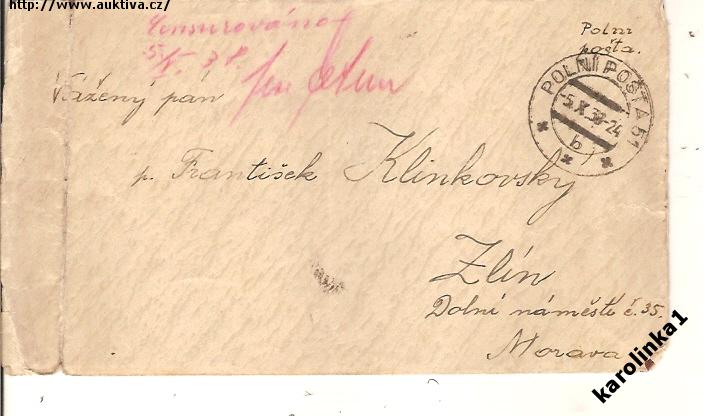 http://www.auktiva.cz/
Censurováno
5/X. 38.
Polní
pošta.
POLNÍ POŠTA 51
-5.X.38-24
b
Vážený pán
p. František Klinkovský
Zlín
Dolní náměstí č. 35.
Morava
karolinka1